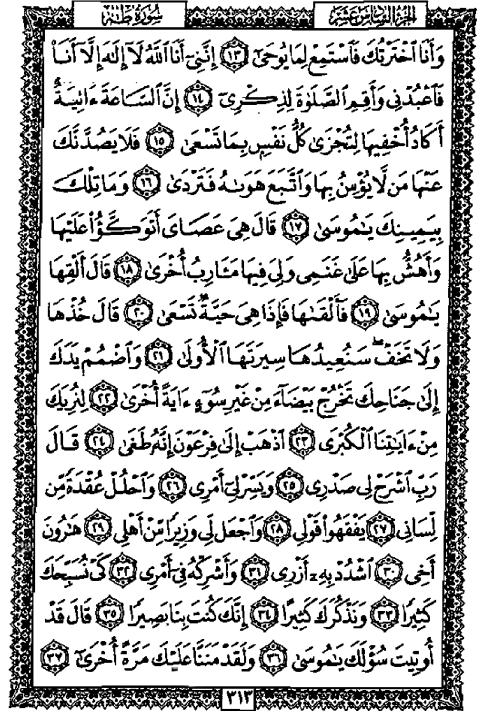 الجزء السادس عشر
سورة طه
وَأَنَا ٱخْتَرْتُكَ فَٱسْتَمِعْ لِمَا يُوحَىٰٓ ١٣ إِنَّنِىٓ أَنَا ٱللَّهُ لَآ إِلَٰهَ إِلَّآ أَنَا۠
فَٱعْبُدْنِى وَأَقِمِ ٱلصَّلَوٰةَ لِذِكْرِىٓ ١٤ إِنَّ ٱلسَّاعَةَ ءَاتِيَةٌ
أَكَادُ أُخْفِيهَا لِتُجْزَىٰ كُلُّ نَفْسٍۭ بِمَا تَسْعَىٰ ١٥ فَلَا يَصُدَّنَّكَ
عَنْهَا مَن لَّا يُؤْمِنُ بِهَا وَٱتَّبَعَ هَوَىٰهُ فَتَرْدَىٰ ١٦ وَمَا تِلْكَ
بِيَمِينِكَ يَٰمُوسَىٰ ١٧ قَالَ هِىَ عَصَاىَ أَتَوَكَّؤُا۟ عَلَيْهَا
وَأَهُشُّ بِهَا عَلَىٰ غَنَمِى وَلِىَ فِيهَا مَـَٔارِبُ أُخْرَىٰ ١٨ قَالَ أَلْقِهَا
يَٰمُوسَىٰ ١٩ فَأَلْقَىٰهَا فَإِذَا هِىَ حَيَّةٌ تَسْعَىٰ ٢٠ قَالَ خُذْهَا
وَلَا تَخَفْ ۖ سَنُعِيدُهَا سِيرَتَهَا ٱلْأُولَىٰ ٢١ وَٱضْمُمْ يَدَكَ
إِلَىٰ جَنَاحِكَ تَخْرُجْ بَيْضَآءَ مِنْ غَيْرِ سُوٓءٍ ءَايَةً أُخْرَىٰ ٢٢ لِنُرِيَكَ
مِنْ ءَايَٰتِنَا ٱلْكُبْرَى ٢٣ ٱذْهَبْ إِلَىٰ فِرْعَوْنَ إِنَّهُۥ طَغَىٰ ٢٤ قَالَ
رَبِّ ٱشْرَحْ لِى صَدْرِى ٢٥ وَيَسِّرْ لِىٓ أَمْرِى ٢٦ وَٱحْلُلْ عُقْدَةً مِّن
لِّسَانِى ٢٧ يَفْقَهُوا۟ قَوْلِى ٢٨ وَٱجْعَل لِّى وَزِيرًا مِّنْ أَهْلِى ٢٩ هَٰرُونَ
أَخِى ٣٠ ٱشْدُدْ بِهِۦٓ أَزْرِى ٣١ وَأَشْرِكْهُ فِىٓ أَمْرِى ٣٢ كَىْ نُسَبِّحَكَ
كَثِيرًا ٣٣ وَنَذْكُرَكَ كَثِيرًا ٣٤ إِنَّكَ كُنتَ بِنَا بَصِيرًا ٣٥ قَالَ قَدْ
أُوتِيتَ سُؤْلَكَ يَٰمُوسَىٰ ٣٦ وَلَقَدْ مَنَنَّا عَلَيْكَ مَرَّةً أُخْرَىٰٓ ٣٧
٣١٣